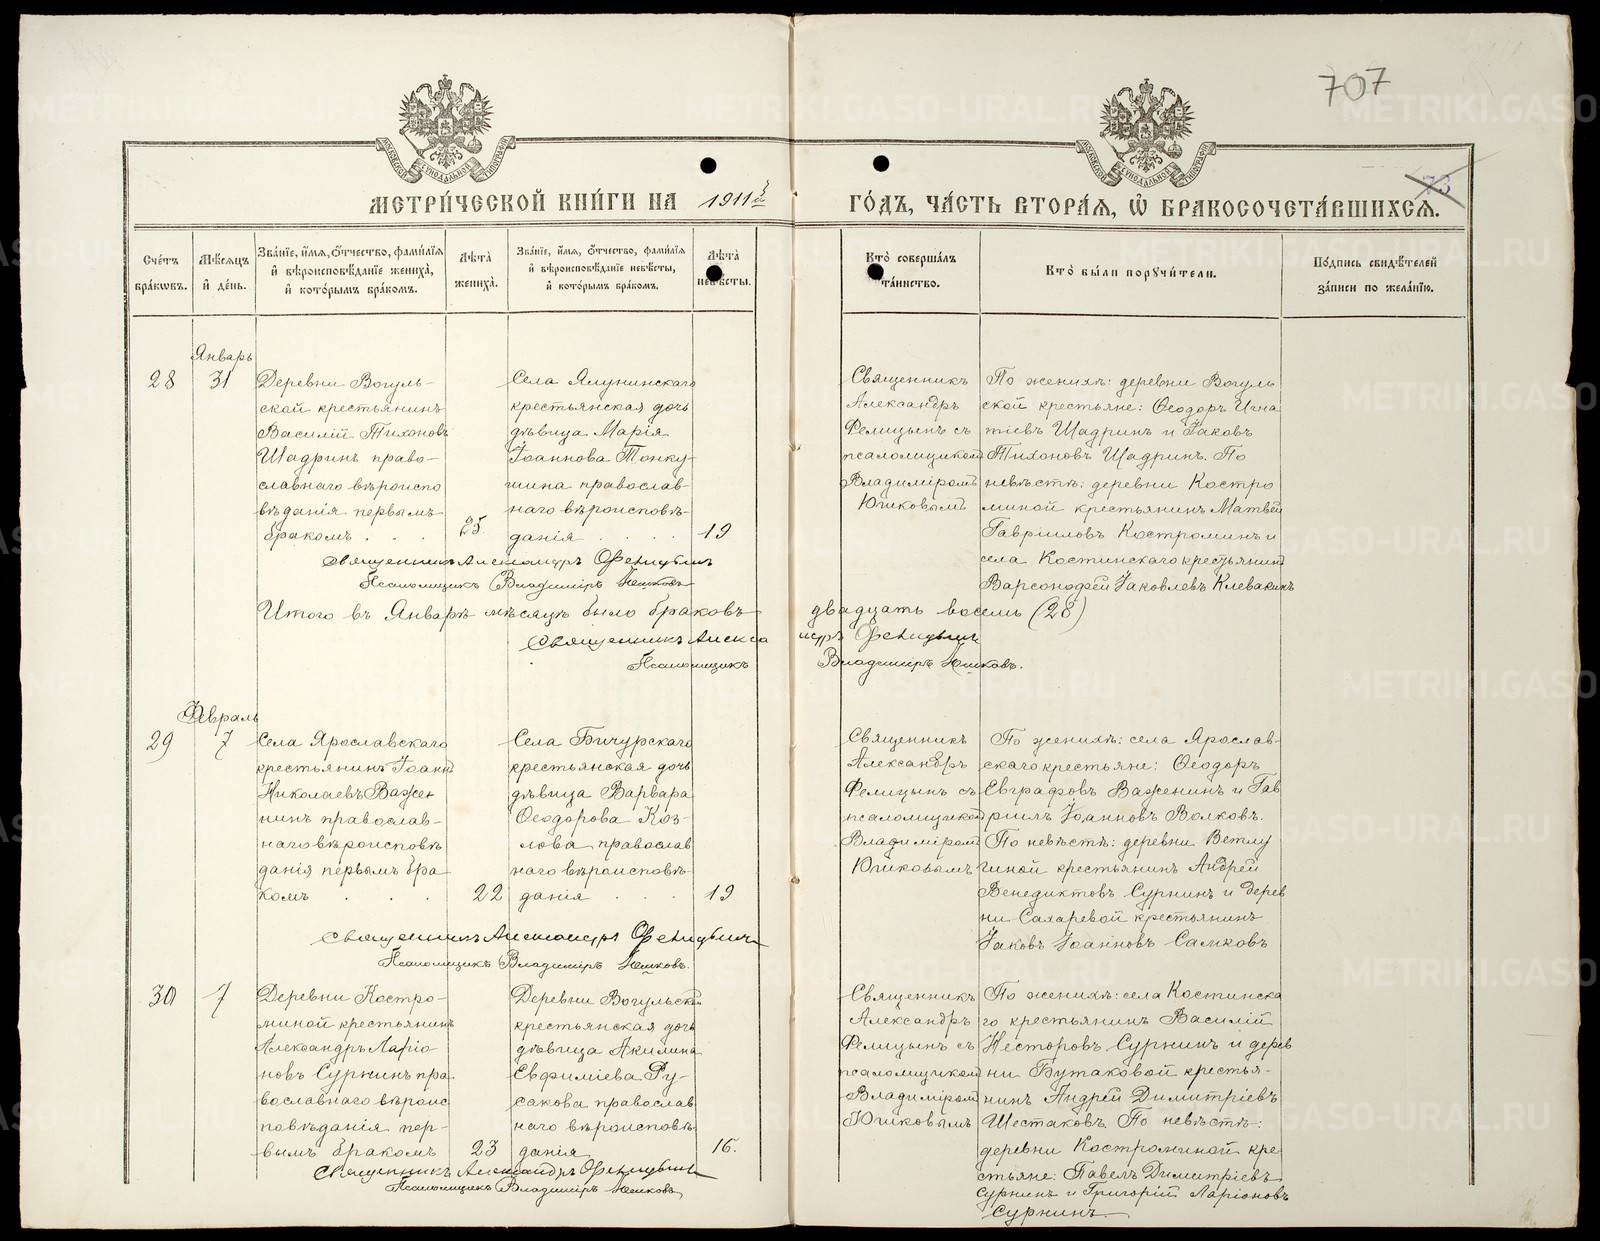 707
73
МЕТРИ́ЧЕСКОЙ КНИ́ГИ НА 1911й
ГО́ДЪ, ЧА́СТЬ ВТОРА́Я, Ѡ БРАКОСОЧЕТА́ВШИХСЯ.
Сче́тъ бра́кѡвъ.
Мѣ́сяцъ и҆ де́нь.
Зва́нїе, и҆́мя, ѻ҆́тчество, фами́лїя и҆ вѣроисповѣ́данїе жениха̀, и҆ кото́рымъ бра́комъ.
Лѣ́та жениха̀.
Зва́нїе, и҆́мя, ѻ҆́тчество, фами́лїя и҆ вѣроисповѣ́данїе невѣ́сты, и҆ кото́рымъ бра́комъ.
Лѣ́та невѣ́сты.
Кто̀ соверша́лъ та́инство.
Кто̀ бы́ли порꙋчи́тели.
По́дпись свидѣ́телей за́писи по жела́нїю.
Январь
28
31
Деревни Вогуль-
ской крестьянинъ
Василій Тихоновъ
Шадринъ право-
славнаго вѣроиспо
вѣданія первымъ
бракомъ . . .
25.
Села Ялунинскаго
крестьянская дочь
дѣвица Марія
Іоаннова Тонку-
шина православ-
наго вѣроисповѣ-
данія . . . .
19
Священникъ
Александръ
Фелицынъ съ
псаломщикомъ
Владиміромъ
Юшковымъ
По женихѣ: деревни Вогуль
ской крестьяне: Ѳеодоръ Игна
тіевъ Шадринъ и Іаковъ
Тихоновъ Шадринъ. По
невѣстѣ: деревни Костро
миной крестьянинъ Матвѣй
Гавриловъ Костроминъ и
села Костинскаго крестьянинъ
Варсонофей Іаковлевъ Клевакинъ
Священникъ Александръ Фелицынъ
Псаломщикъ Владиміръ Юшковъ
Итого въ Январѣ мѣсяцѣ было браковъ двадцать восемь (28)
Священникъ Александръ Фелицынъ
Псаломщикъ Владиміръ Юшковъ.
Февраль
29
7
Села Ярославскаго
крестьянинъ Іоаннъ
Николаевъ Важе-
нинъ православ-
наго вѣроисповѣ
данія первымъ бра
комъ . . .
22
Села Бичурскаго
крестьянская дочь
дѣвица Варвара
Ѳеодорова Коз-
лова православ
наго вѣроисповѣ-
данія . . .
19
Священникъ
Александръ
Фелицынъ съ
псаломщикомъ
Владиміромъ
Юшковымъ
По женихѣ: села Ярослав-
скаго крестьяне: Ѳеодоръ
Евграфовъ Важенинъ и Гав
ріилъ Іоанновъ Волковъ.
По невѣстѣ: деревни Ветлу
гиной крестьянинъ Андрей
Венедиктовъ Сурнинъ и дерев
ни Сахаревой крестьянинъ
Іаковъ Іоанновъ Салковъ
Священникъ Александръ Фелицынъ
Псаломщикъ Владиміръ Юшковъ.
30
7
Деревни Костро-
миной крестьянинъ
Александръ Ларіо-
новъ Сурнинъ пра
вославнаго вѣроис
повѣданія пер-
вымъ бракомъ
23
Деревни Вогульской
крестьянская дочь
дѣвица Акилина
Евфиміева Ру-
сакова православ
наго вѣроисповѣ
данія
16.
Священникъ
Александръ
Фелицынъ съ
псаломщикомъ
Владиміромъ
Юшковымъ
По женихѣ: села Костинска
го крестьянинъ Василій
Несторовъ Сурнинъ и дерев
ни Бутаковой крестья-
нинъ Андрей Димитріевъ
Шестаковъ. По невѣстѣ:
деревни Костроминой кре
стьяне: Павелъ Димитріевъ
Сурнинъ и Григорій Ларіоновъ
Сурнинъ.
Священникъ Александръ Фелицынъ
Псаломщикъ Владиміръ Юшковъ
METRIKI.GASO-URAL.RU